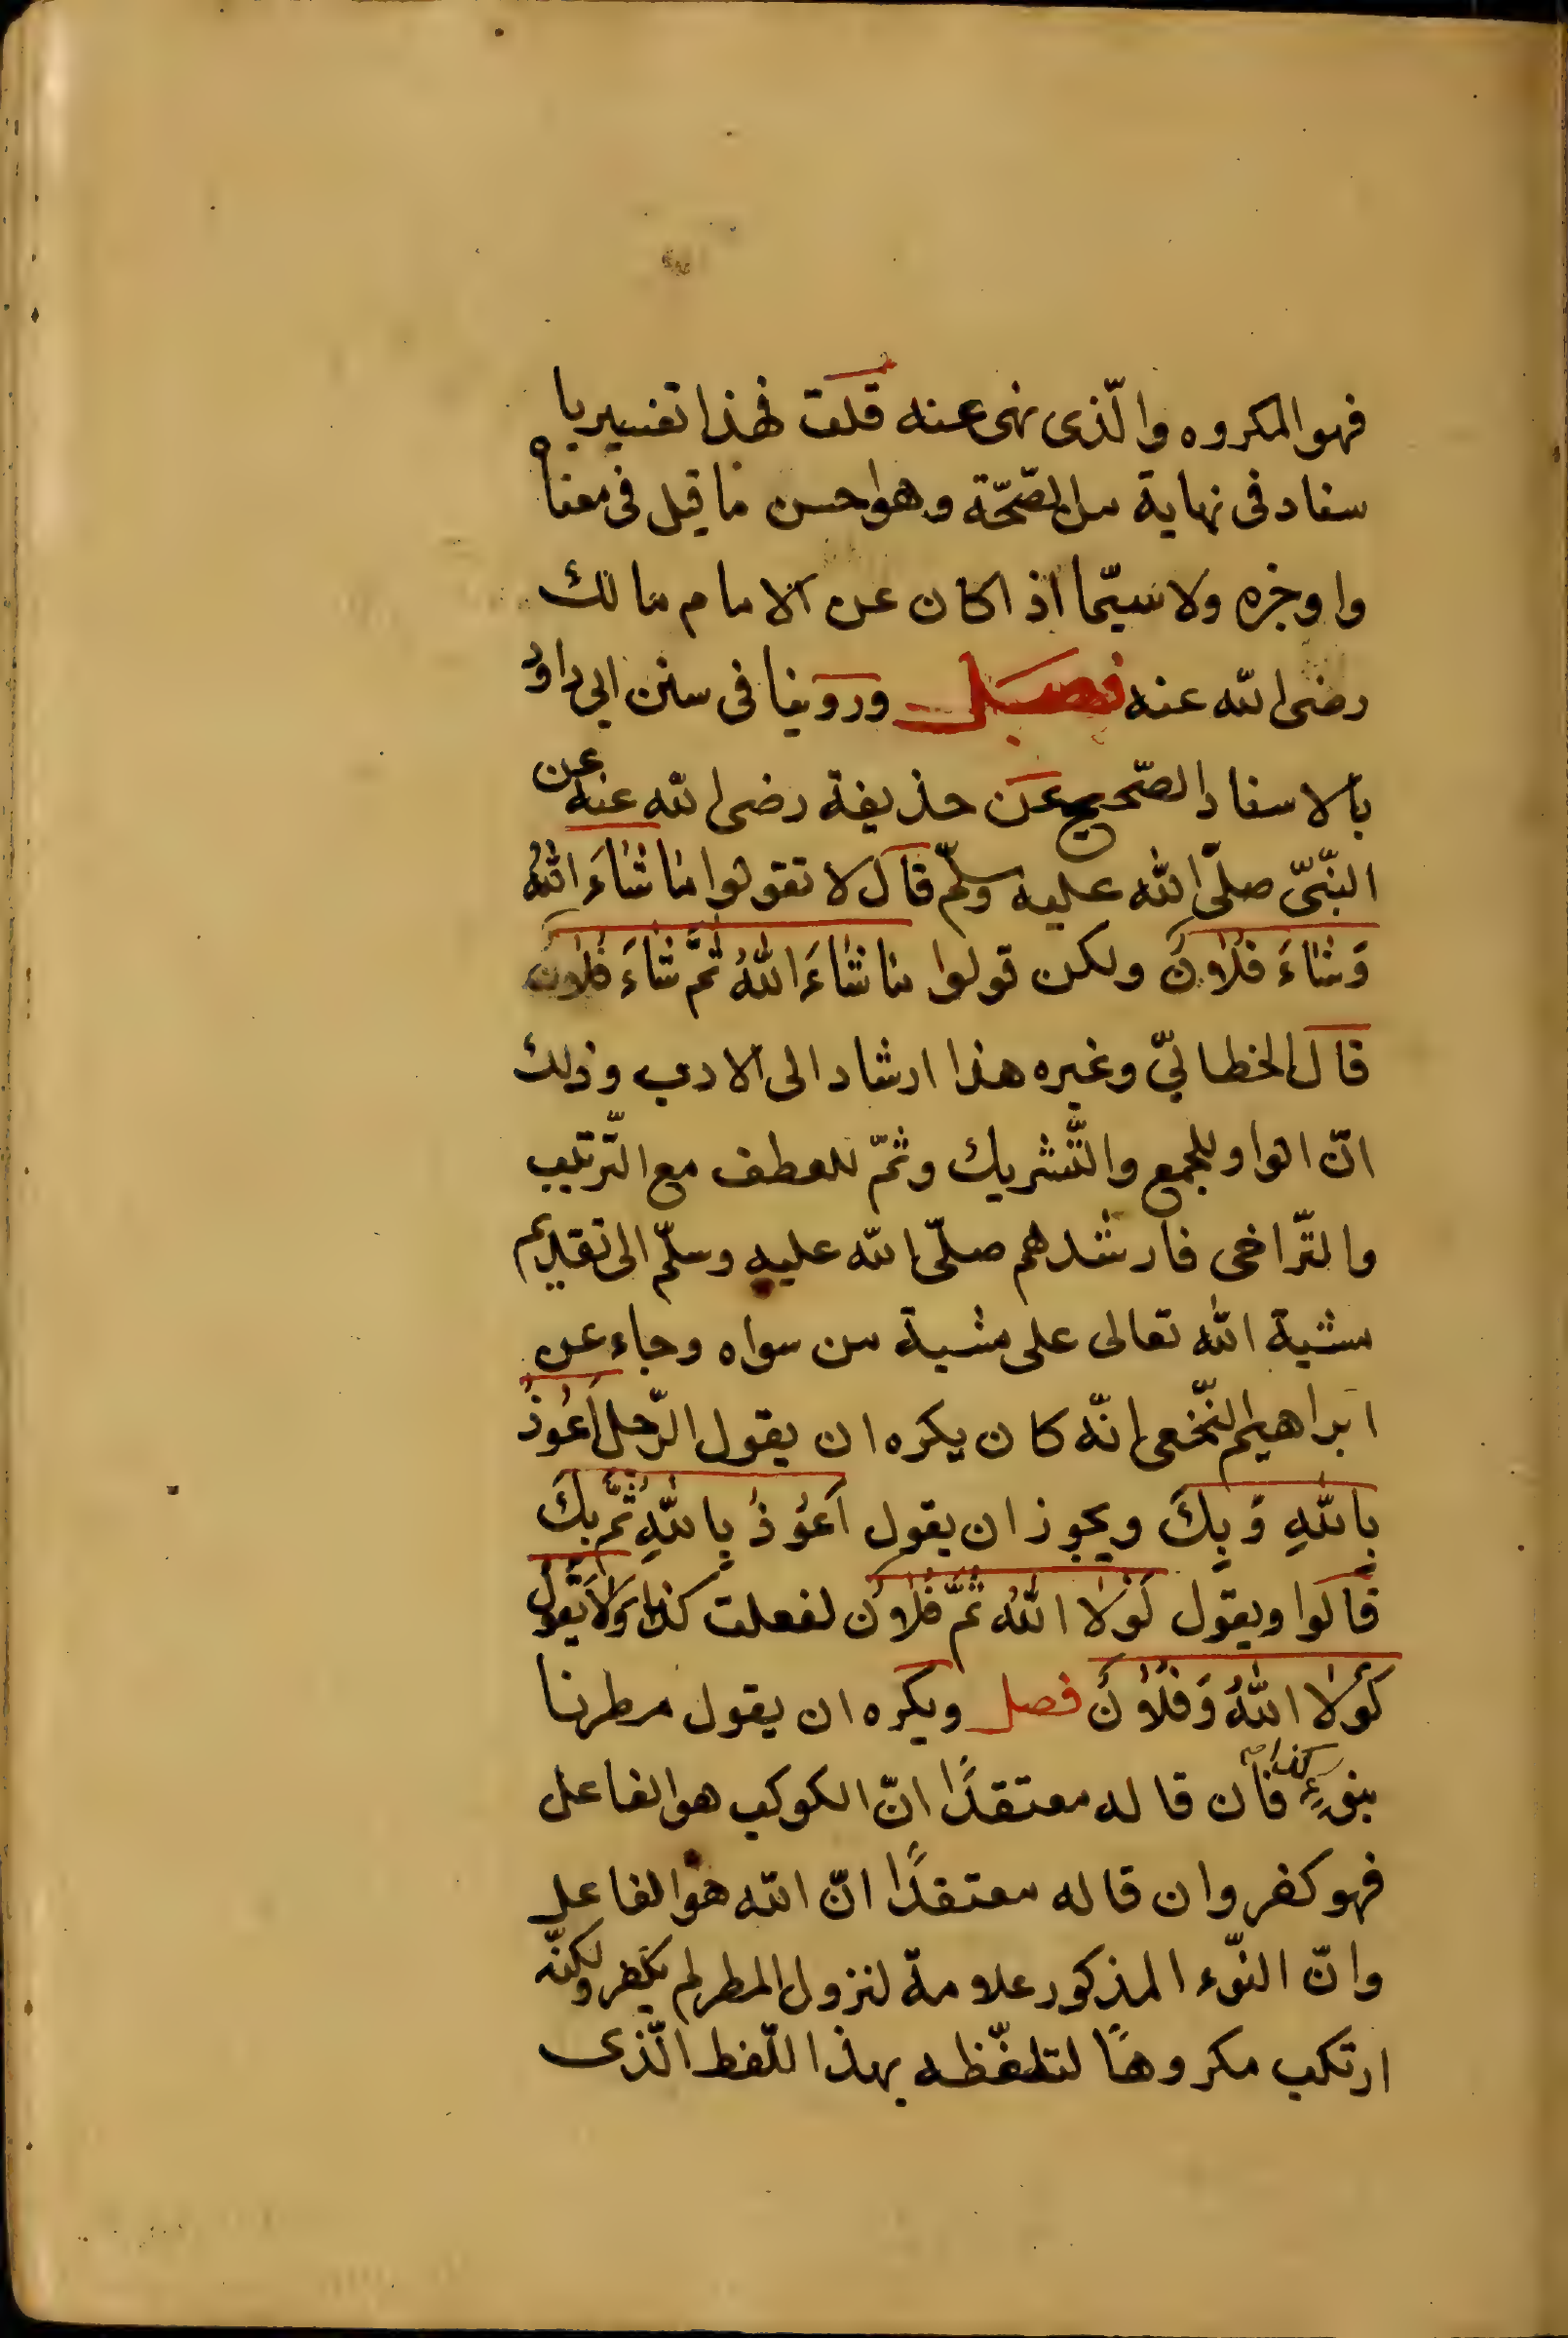 فهو المكروه والّذى نهى عنه قلت فهذا تفسير با
سناد فى نهاية من الصّحّة وهو احسن ما قيل فى معناه
واوجزه ولا سيّما اذا كان عن الامام مالك
رضى الله عنه فصل وروينا فى سنن ابى داوُد
بالاسناد الصّحيح عن حذيفة رضى الله عنه عن
النّبىّ صلّى الله عليه وسلّم قال لا تقولوا مَا شَاءَ اللهُ
وَشَاءَ فُلَانٌ ولكن قولوا مَا شَاءَ اللهُ ثُمَّ شَاءَ فُلَانٌ
قال الخطابىّ وغيره هذا ارشاد الى الادب وذلك
انّ الواو للجمع والتّشريك وثمّ للعطف مع التّرتيب
والتّراخى فارشدهم صلّى الله عليه وسلّم الى تقديم
مشية الله تعالى على مشية من سواه وجاء عن
ابراهيم النّخعى انّه كان يكره ان يقول الرّجل اَعُوذُ
بِاللهِ وَبِكَ ويجوز ان يقول اَعُوذُ بِاللهِ ثُمَّ بِكَ
قالوا ويقول لَوْلَا اللهُ ثُمَّ فُلَانٌ لفعلت كذا وَلَا يَقُول
لَوْلَا اللهُ وَفُلَانٌ فصل ويكره ان يقول مطرنا
بنوءِ كذا فان قاله معتقدًا انّ الكوكب هو الفاعل
فهو كفر وان قاله معتقدًا انّ الله هو الفاعل
وانّ النّوء المذكور علامة لنزول المطر لم يكفر ولكنّه
ارتكب مكروهًا لتلفّظه بهذا اللّفظ الّذى